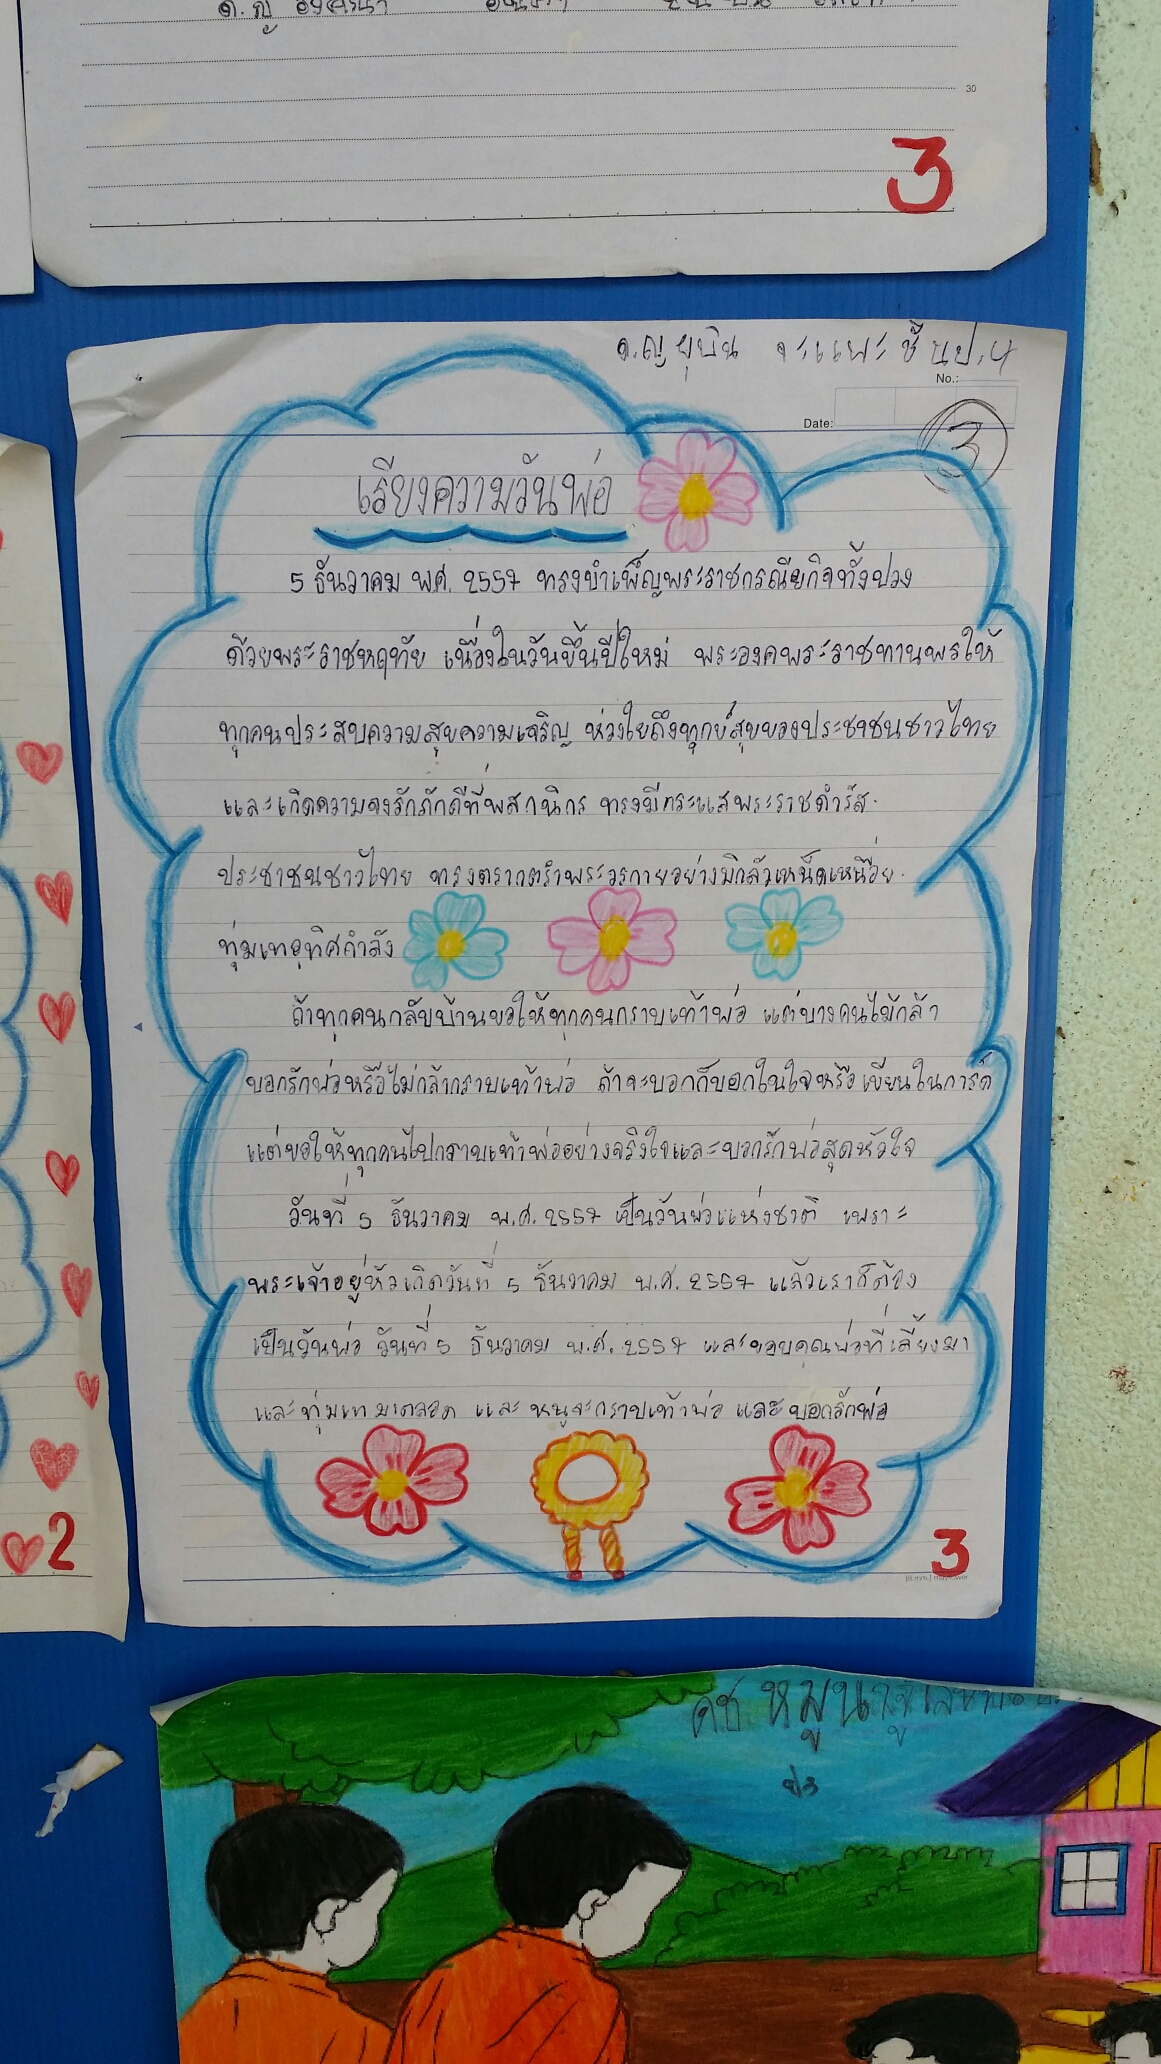 30
3
ด.ญ ยุบิน จะแพะ ชั้นป.4
No.:
Date:
3
เรียงความวันพ่อ
5 ธันวาคม พศ. 2557 ทรงบำเพ็ญพระราชกรณียกิจทั้งปวง
ด้วยพระราชหฤทัย เนื่องในวันขึ้นปีใหม่ พระองคพระราชทานพรให้
ทุกคนประสบความสุขความเจริญ ห่วงใยถึงทุกข์สุขของประชาชนชาวไทย
และเกิดความจงรักภักดีที่พสกนิกร ทรงมีกระแสพระราชดำรัส
ประชาชนชาวไทย ทรงตรากตรำพระวรกายอย่างมิกลัวเหน็ดเหนื่อย
ทุ่มเทอุทิศกำลัง
ถ้าทุกคนกลับบ้านขอให้ทุกคนกราบเท้าพ่อ แต่บางคนไม่กล้า
บอกรักพ่อหรือไม่กล้ากราบเท้าพ่อ ถ้าจะบอกก็บอกในใจหรือเขียนในการ์ด
แต่ขอให้ทุกคนไปกราบเท้าพ่ออย่างจริงใจและบอกรักพ่อสุดหัวใจ
วันที่ 5 ธันวาคม พ.ศ. 2557 เป็นวันพ่อแห่งชาติ เพราะ
พระเจ้าอยู่หัวเกิดวันที่ 5 ธันวาคม พ.ศ. 2557 แล้วเราก็ต้อง
เป็นวันพ่อ วันที่ 5 ธันวาคม พ.ศ. 2557 และขอบคุณพ่อที่เลี้ยงมา
และทุ่มเทมาตลอด และ หนูจะกราบเท้าพ่อ และบอกรักพ่อ
3
2
ป3